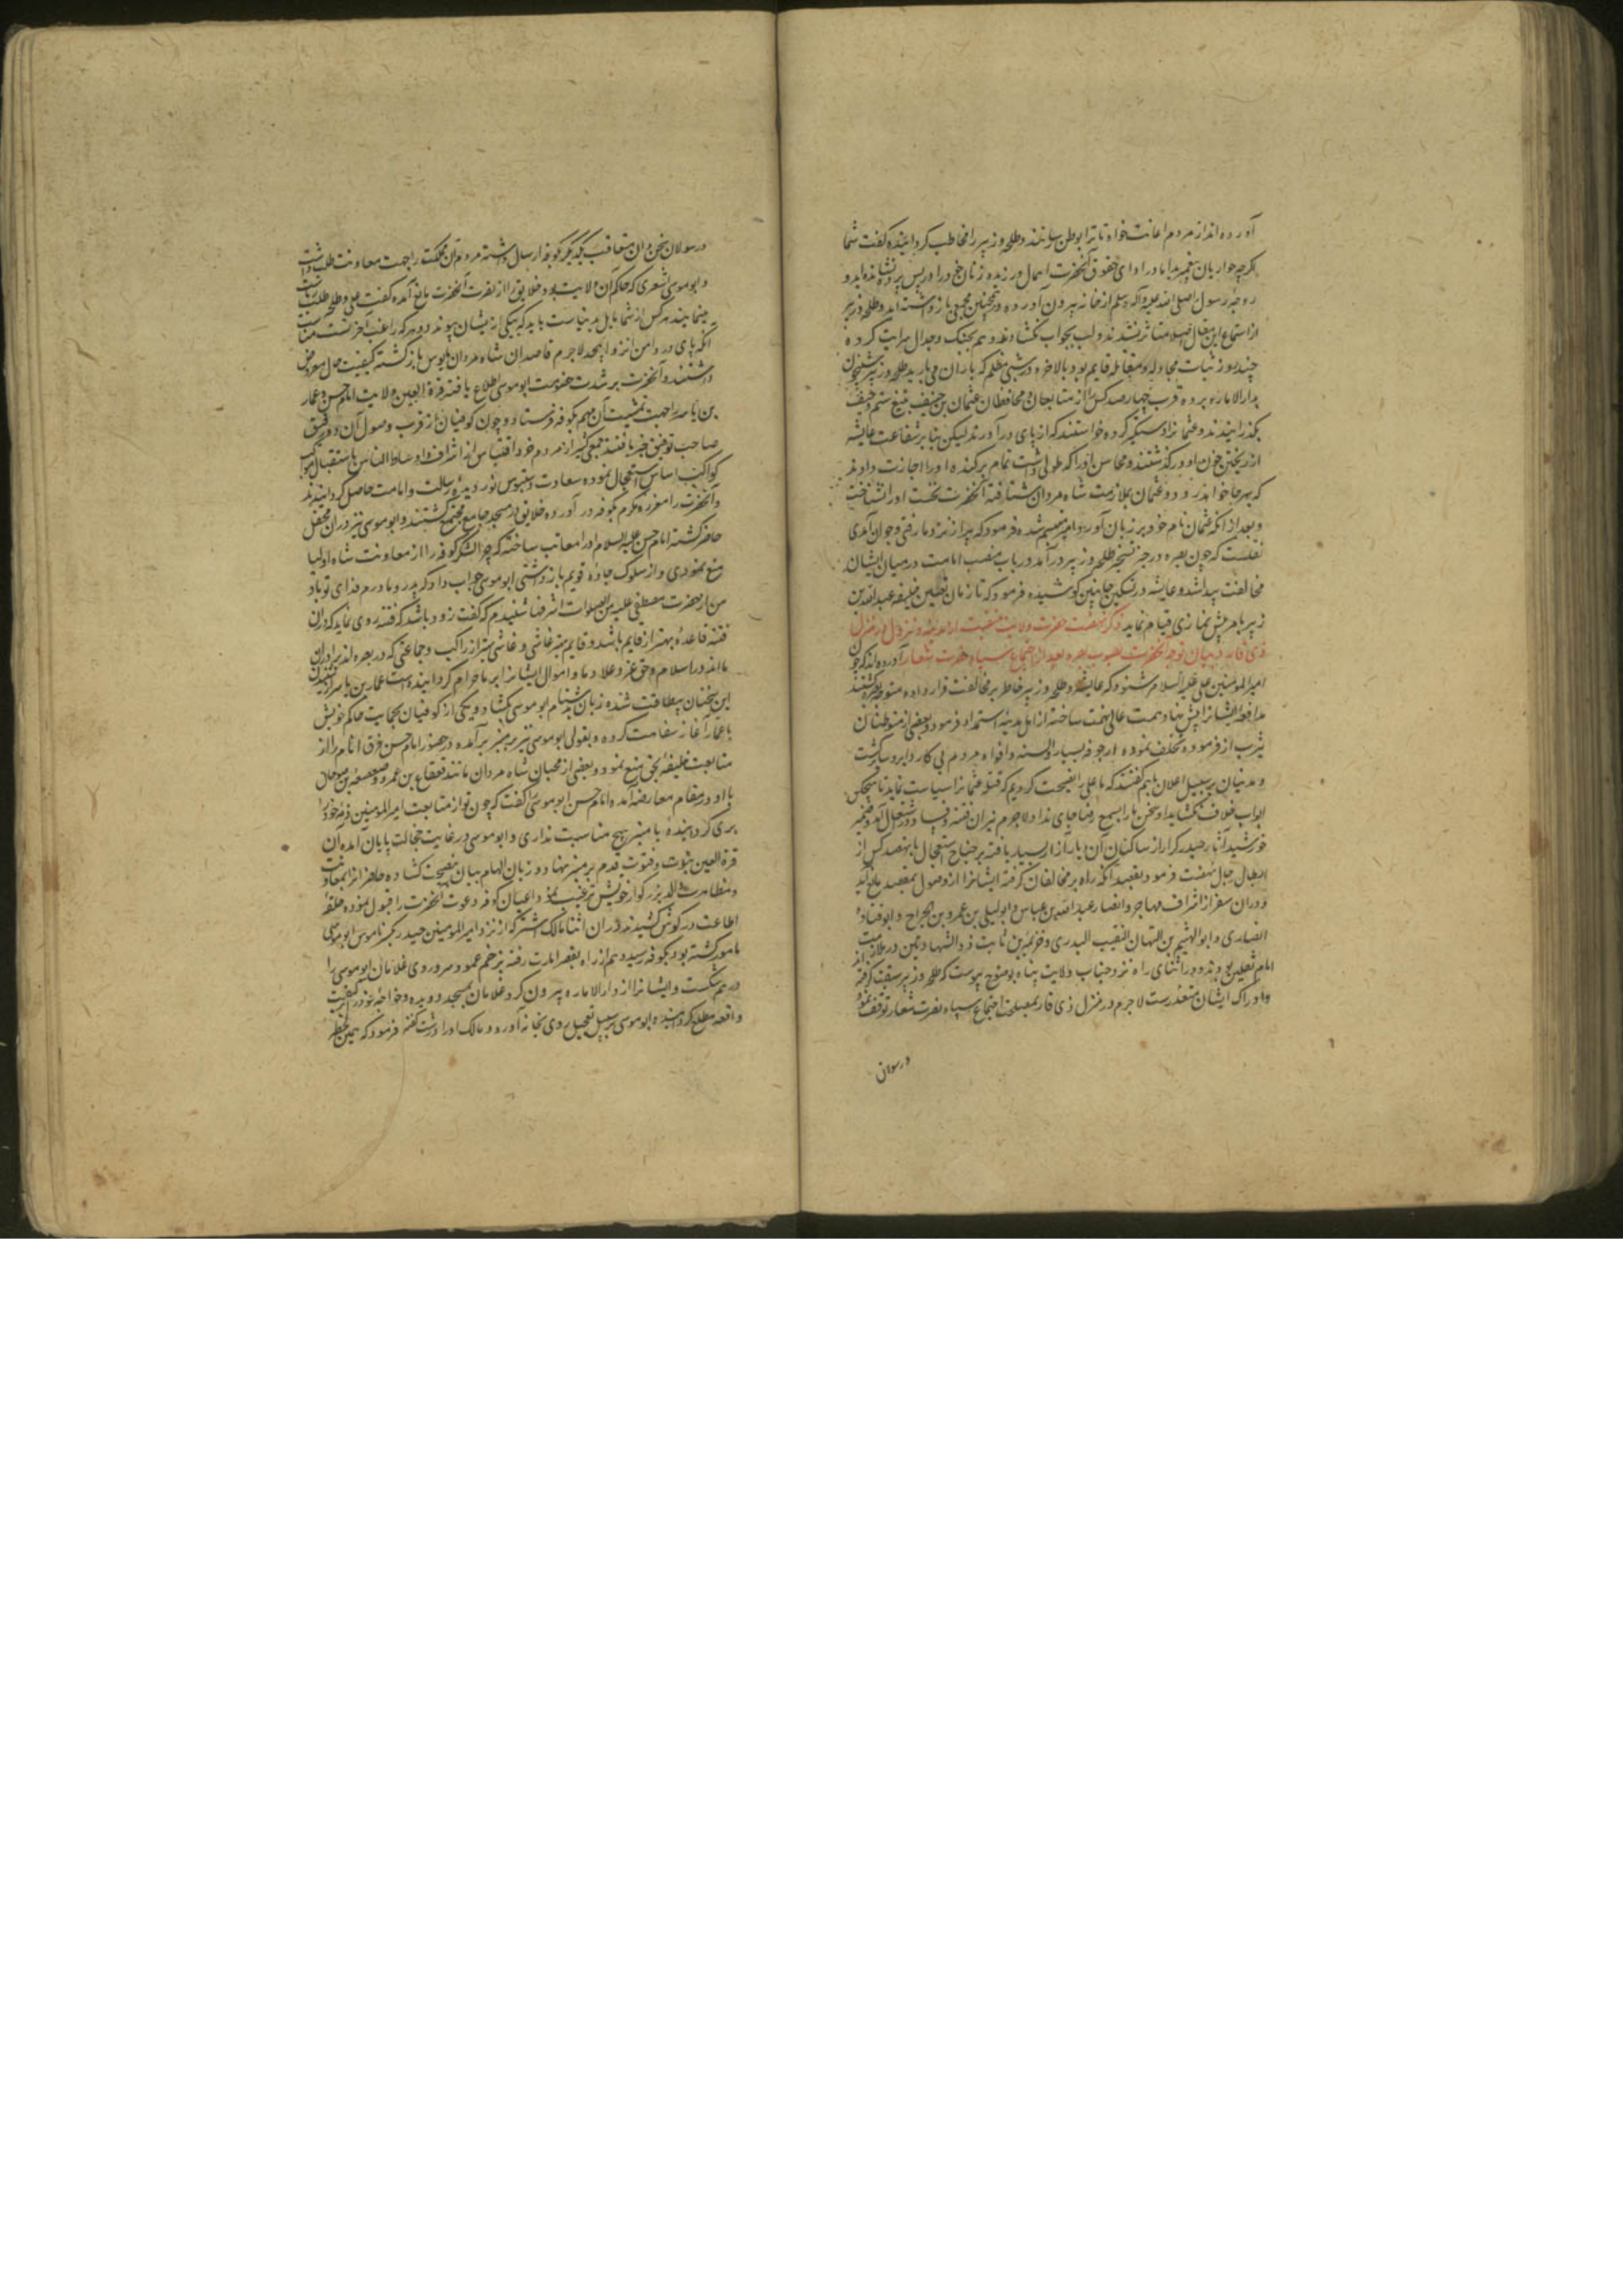 آورده‌اند از مردم اعانت خواه تا ترا بوطن رسانند و طلحه و زبیر را مخاطب کردانیده کفت شما
اکرچه حواریان پیغمبرید اما در ادای حقوق آنحضرت اهمال ورزیده زنان خود را در پس پرده نشانده‌اید و
زوجهٔ رسول صلی الله علیه وآله وسلم از خانه بیرون آورده در چنین مجمعی بازداشته‌اید و طلحه و زبیر
از استماع این مقال اصلا متاثر نشدند و لب بجواب نکشادند و بهم بجنک و جدال سرایت کرده
چند روز ثبات مجادله و مقاتله قایم بود بالاخره در شبی مظلم که باران می بارید طلحه و زبیر شبیخون
بدار الاماره برده قرب چهارصد کس را از متابعان و محافظان عثمان بن حنیف بتیغ ستم و حیف
بکذرانیدند و عثمانرا دستکیر کرده خواستند که از پای درآورند لیکن بنا بر شفاعت عایشه
از ریختن خون او درکذشتند و محاسن او را که طولی داشت تمام برکنده او را اجازت دادند
که بهرجا خواهد رود و عثمان بملازمت شاه مردان شتافته آنحضرت نخست او را نشناخت
و بعد از آنکه عثمان نام خود بر زبان آورد امام متبسم شده فرمود که پیر از نزد ما رفتی و جوان آمدی
نقلست که چون بصره در حیز تسخیر طلحه و زبیر درآمد در باب منصب امامت در میان ایشان
مخالفت پیدا شد و عایشه در تسکین جانبین کوشیده فرمود که تا زمان تعیین خلیفه عبدالله بن
زبیر بامر پیش نمازی قیام نماید ذکر نهضت حضرت ولایت منقبت از مدینه و نزول در منزل
ذی قار و بیان توجه آنحضرت بصوب بصره بعد از اجتماع سپاه نصرت شعار آورده‌اند که چون
امیرالمومنین علی علیه السلام شنود که عایشه و طلحه و زبیر خاطر بر مخالفت قرار داده متوجه بصره کشتند
مدافعهٔ ایشانرا پیش نهاد همت عالی نهمت ساخته از اهل مدینه استمداد فرمود و بعضی از متوطنان
یثرب از فرموده تخلف نموده ارجوفه بسیار در السنه و افواه مردم بی کار دایر و سایر کشت
و مدنیان بر سبیل اعلان باهم کفتند که ما علی را نصیحت کردیم که قتله عثمانرا سیاست نماید تا هیچکس
ابواب خلاف نکشاید او سخن ما را بسمع رضا جای نداد لاجرم نیران فتنه و فساد در اشتعال آمد و ضمیر
خورشید آثار حیدر کرار از ساکنان آن دیار آزار بسیار یافته بر جناح استعجال با نهصد کس از
ابطال رجال نهضت فرمود بقصد آنکه راه بر مخالفان کرفته ایشانرا از وصول بمقصد مانع آید
و در آن سفر از اشراف مهاجر و انصار عبدالله بن عباس و ابولیلی بن عمرو بن الجراح و ابوقتادهٔ
انصاری و ابوالهیثم بن التیهان النقیب البدری و خزیمه بن ثابت ذوالشهادتین در ملازمت
امام ثقلین بودند و در اثنای راه نزد جناب ولایت پناه بوضوح پیوست که طلحه و زبیر سبقت کرفته‌اند
و ادراک ایشان متعذرست لاجرم در منزل ذی قار بمصلحت اجتماع سپاه نصرت شعار توقف نموده
و رسولان
و رسولان سخن دان متعاقب یکدیکر بکوفه ارسال داشته مردم آن مملکت را جهت معاونت طلب داشت
و ابوموسی اشعری که حاکم آن ولایت بود خلایق را از نصرت آنحضرت مانع آمده کفت علی و طلحه طلب ریاست
مینمایند هر کس از شما مایل بدنیاست باید که بیکی از ایشان پیوندد و هرکه راغب آخرتست مناسب
آنکه پای در دامن انزوا پیچد لاجرم قاصدان شاه مردان مایوس بازکشته کیفیت حال معروض
داشتند و آنحضرت بر شدت خصومت ابوموسی اطلاع یافته قرة العین ولایت امام حسن و عمار
بن یاسر را جهت تمشیت آن مهم بکوفه فرستاد و چون کوفیان از قرب وصول آن دو رفیق
صاحب توفیق خبر یافتند جمعی کثیر از مردم خود اقتباس از اشراف و اوساط الناس باستقبال موکب
کواکب اساس استعجال نموده سعادت دستبوس نور دیدهٔ رسالت و امامت حاصل کردانیدند
و آنحضرت را معزز و مکرم بکوفه درآورده خلایق در مسجد جامع مجتمع کشتند و ابوموسی نیز در آن محفل
حاضر کشته امام حسن علیه السلام او را معاتب ساخته که چرا لشکر کوفه را از معاونت شاه اولیا
منع نمودی و از سلوک جادهٔ قویم بازداشتی ابوموسی جواب داد که پدر و مادرم فدای تو باد
من از حضرت مصطفی علیه من الصلوات اشرفها شنیدم که کفت زود باشد که فتنه روی نماید که در آن
فتنه قاعده بهتر از قایم باشد و قایم بهتر از ماشی و ماشی بهتر از راکب و جماعتی که در بصره‌اند برادران
مااند در اسلام و حق عز و علا دما و اموال ایشانرا بر ما حرام کردانیده است عمار بن یاسر از شنیدن
این سخنان بیطاقت شده زبان بدشنام ابوموسی بکشاد و یکی از کوفیان بحمایت حاکم خویش
با عمار آغاز سفاهت کرده و بقولی ابوموسی نیز بر منبر برآمده در حضور امام حسن فرق انام را از
متابعت خلیفهٔ بحق منع نمود و بعضی از محبان شاه مردان مانند قعقاع بن عمرو و صعصعه بن صوحان
با او در مقام معارضه آمده امام حسن ابوموسی را کفت که چون تو از متابعت امیرالمومنین ذمه خود را
بری کردانیدهٔ با منبر هیچ مناسبت نداری و ابوموسی در غایت خجالت پایان آمده آن
قرة العین نبوت و فتوت قدم بر منبر نهاد و زبان الهام بیان بنصیحت کشاده حاضرانرا بمعاونت
و مظاهرت والد بزرکوار خویش ترغیب نمود و اعیان کوفه دعوت آنحضرت را قبول نموده حلقهٔ
اطاعت در کوش کشیدند در آن اثنا مالک اشتر که از نزد امیرالمومنین حیدر بکسر ناموس ابوموسی
مامور کشته بود بکوفه رسید و هم از راه بقصر امارت رفته بزخم عمود سر و روی غلامان ابوموسی را
درهم شکست و ایشانرا از دارالاماره بیرون کرد غلامان بمسجد دویده و خواجهٔ خود را بر کیفیت
واقعه مطلع کردانیده ابوموسی بر سبیل تعجیل روی بخانه آورد و مالک او را درشت کفته فرمود که همین لحظه